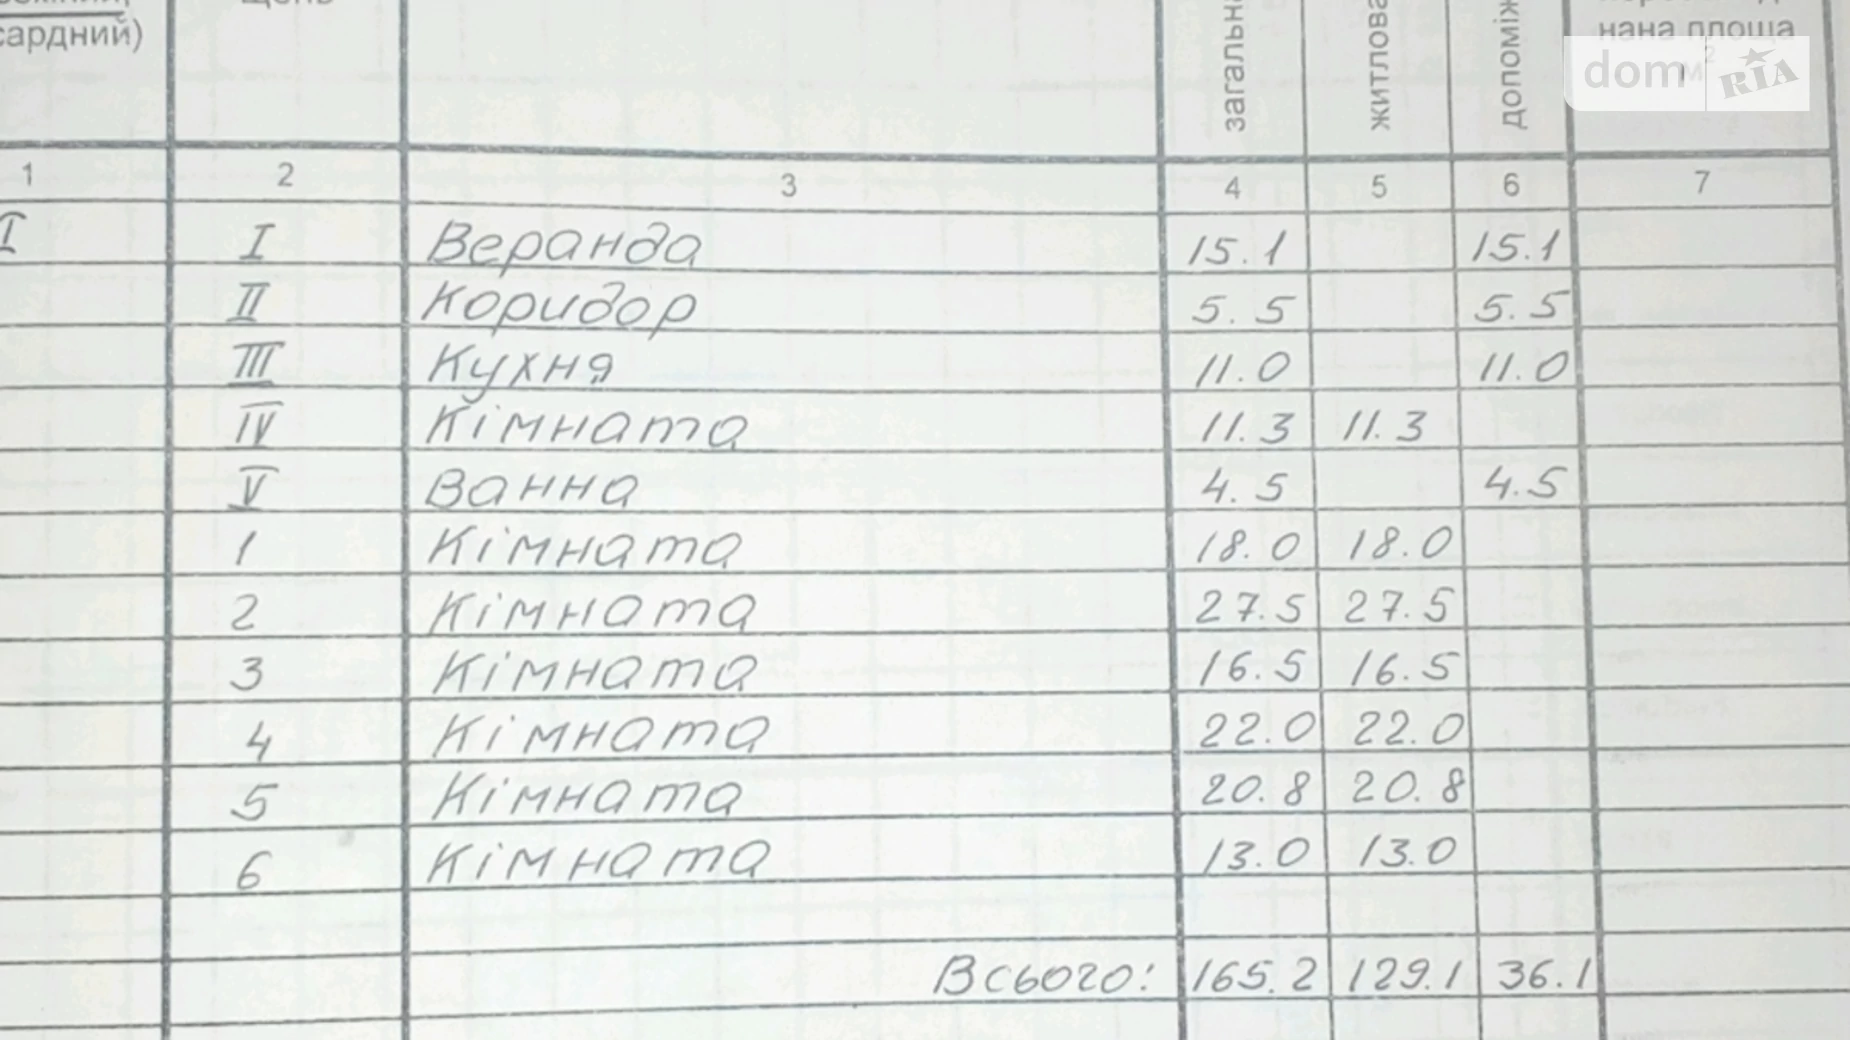 сардний)
загальна
житлова
допоміж
нана площа
м²
dom RIA
1 2 3 4 5 6 7
I I Веранда 15.1 15.1
II Коридор 5.5 5.5
III Кухня 11.0 11.0
IV Кімната 11.3 11.3
V Ванна 4.5 4.5
1 Кімната 18.0 18.0
2 Кімната 27.5 27.5
3 Кімната 16.5 16.5
4 Кімната 22.0 22.0
5 Кімната 20.8 20.8
6 Кімната 13.0 13.0
Всього: 165.2 129.1 36.1